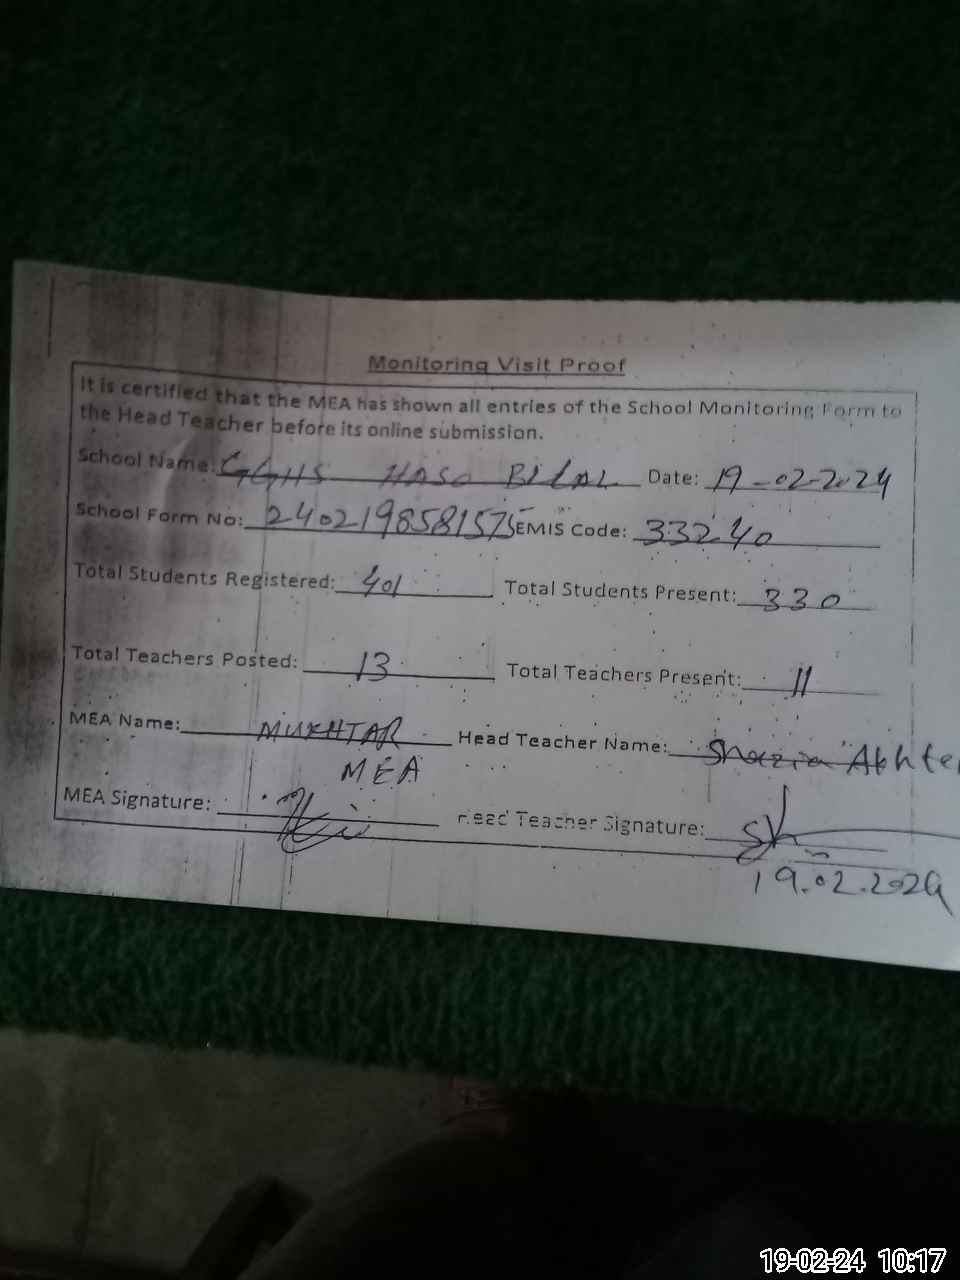 Monitoring Visit Proof
It is certified that the MEA has shown all entries of the School Monitoring Form to
the Head Teacher before its online submission.
School Name: GGHS HASO BILAL Date: 19-02-2024
School Form No: 2402198581575 EMIS Code: 33240
Total Students Registered: 401 Total Students Present: 330
Total Teachers Posted: 13 Total Teachers Present: 11
MEA Name: MUKHTAR Head Teacher Name: Shazia Akhter
MEA
MEA Signature: Head Teacher Signature: Sh
19.02.2024
19-02-24 10:17